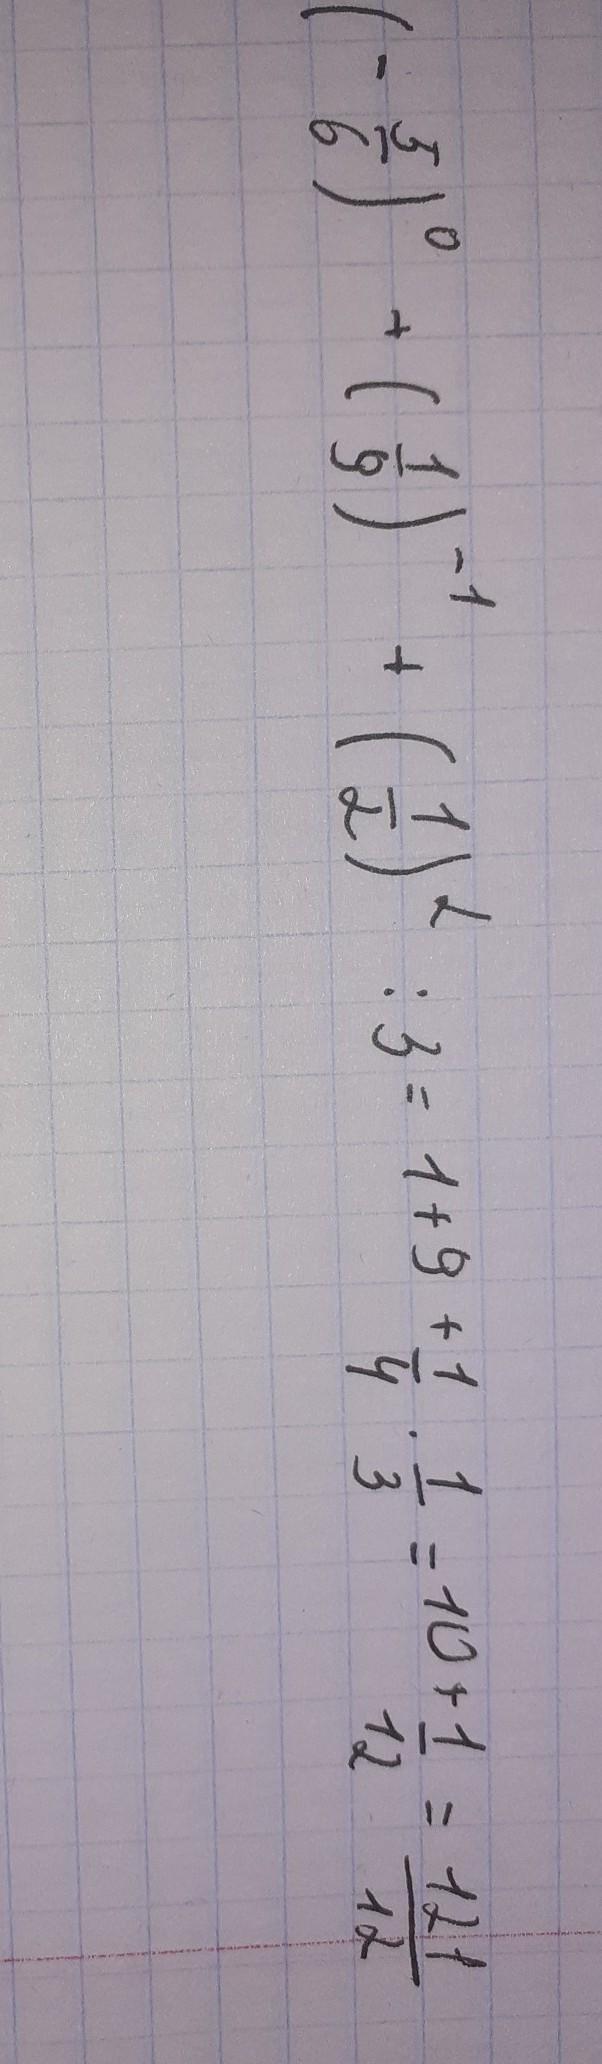 (-5/6)⁰ + (1/9)⁻¹ + (1/2)² : 3 = 1 + 9 + 1/4 · 1/3 = 10 + 1/12 = 121/12